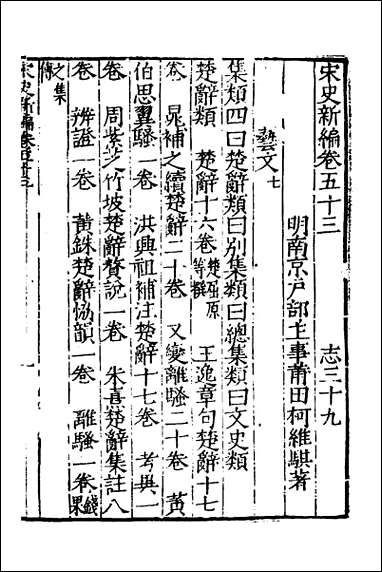 宋史新編卷五十三　志三十九
明南京戶部主事莆田柯維騏著
藝文七
集類四曰楚辭類曰別集類曰總集類曰文史類
楚辭類　楚辭十六卷楚屈原等撰　王逸章句楚辭十七
卷　晁補之續楚辭二十卷　又變離騷二十卷　黃
伯思翼騷一卷　洪興祖補注楚辭十七卷　考異一
卷　周紫芝竹坡楚辭贅說一卷　朱熹楚辭集註八
卷　辨證一卷　黃銖楚辭協韻一卷　離騷一卷錢杲
之集傳
宋史新編卷五十三　一